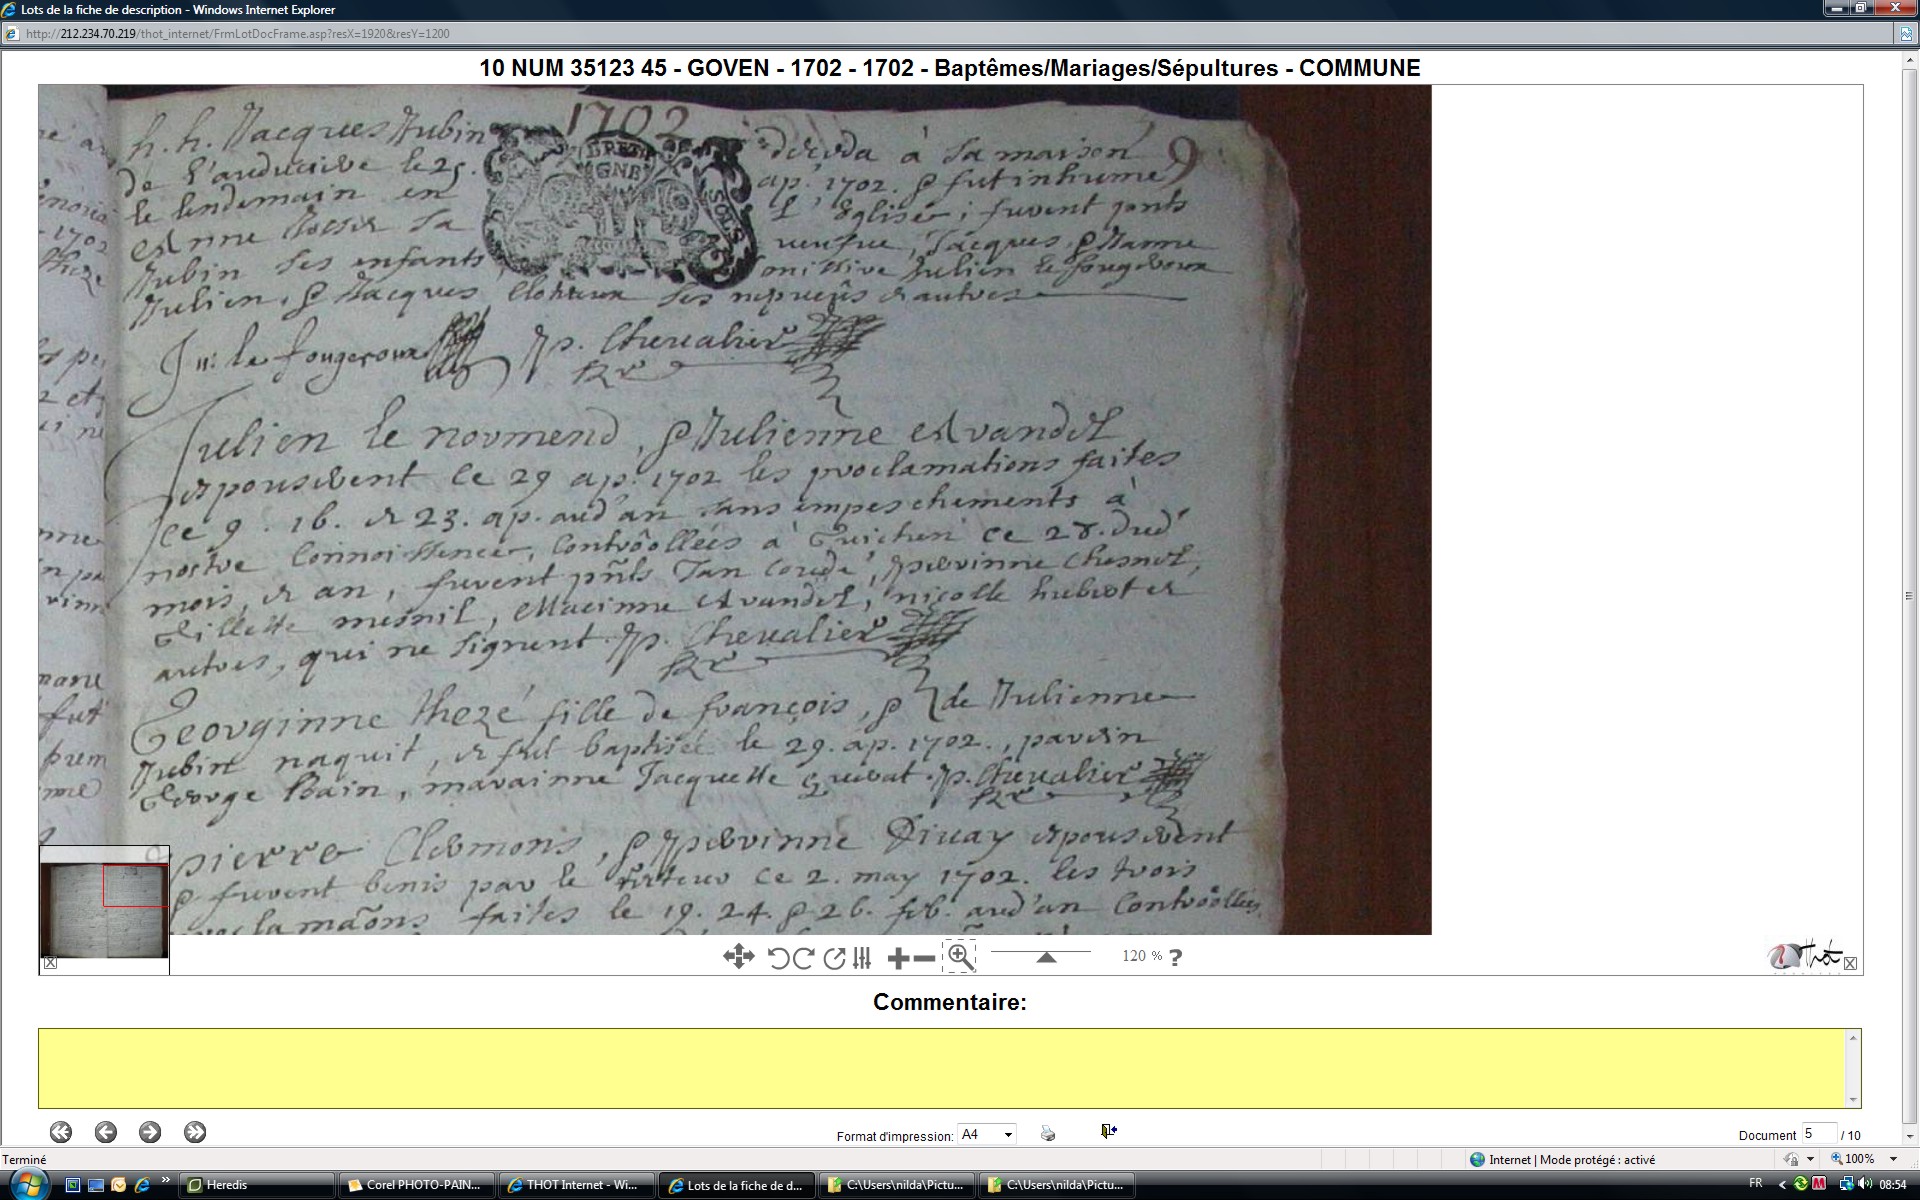 Lots de la fiche de description - Windows Internet Explorer
http://212.234.70.219/thot_internet/FrmLotDocFrame.asp?resX=1920&resY=1200
10 NUM 35123 45 - GOVEN - 1702 - 1702 - Baptêmes/Mariages/Sépultures - COMMUNE
1702
h. h. Jacques Jubin deceda à sa maison
de le 25. ap. 1702. & fut inhumé
le lendemain en l'Eglise; furent pnts
Anne sa veufue, Jacques, & Janne
Jubin ses enfants Julien le fougeroux
Julien, & Jacques ses nepueus et autres
Ju: le fougeroux p. Cheualier
Julien le normend, & Julienne Avandel
epouserent ce 29 ap. 1702 les proclamations faites
ce 9. 16. et 23. ap. aud' an sans empeschements à
nostre connoissence, controollées à Guichen ce 28. dud'
mois, et an, furent pnts Jan Coudé, perrinne Chesnel,
Gillette mesnil, Macinne Avandel, nicolle hubert et
autres, qui ne signent. p. Cheualier
Georginne thezé fille de françois, & de Julienne
Jubin naquit, et fut baptisée le 29. ap. 1702., parrin
George Bain, marainne Jacquette p. Cheualier
pierre Clermons, & perrinne Diuay epouserent
& furent benis par le ce 2. may 1702. les trois
faites le 19. 24. & 26. feb. aud' an Controollées
BRETA
GNE
SOLS
120 % ?
Thot
Commentaire:
Format d'impression: A4
Document 5 / 10
Terminé
Internet | Mode protégé : activé
100%
Heredis
Corel PHOTO-PAIN...
THOT Internet - Wi...
Lots de la fiche de d...
C:\Users\nilda\Pictu...
C:\Users\nilda\Pictu...
FR
08:54